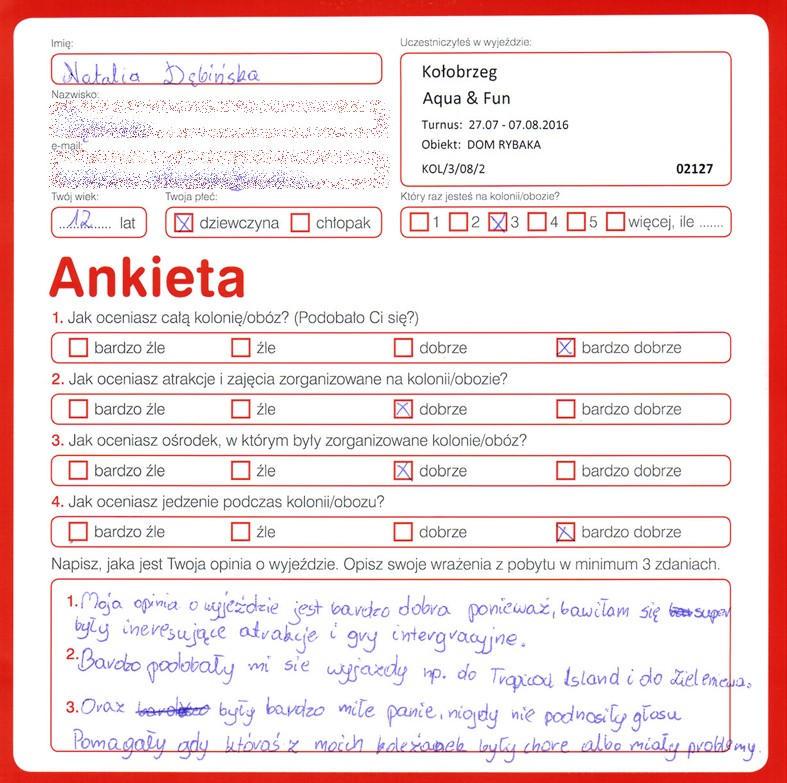 Imię:
Natalia Dębińska
Nazwisko:
e-mail:
Twój wiek:
12 lat
Twoja płeć:
dziewczyna chłopak
Uczestniczyłeś w wyjeździe:
Kołobrzeg
Aqua & Fun
Turnus: 27.07 - 07.08.2016
Obiekt: DOM RYBAKA
KOL/3/08/2 02127
Który raz jesteś na kolonii/obozie?
1 2 3 4 5 więcej, ile .......
Ankieta
1. Jak oceniasz całą kolonię/obóz? (Podobało Ci się?)
bardzo źle źle dobrze bardzo dobrze
2. Jak oceniasz atrakcje i zajęcia zorganizowane na kolonii/obozie?
bardzo źle źle dobrze bardzo dobrze
3. Jak oceniasz ośrodek, w którym były zorganizowane kolonie/obóz?
bardzo źle źle dobrze bardzo dobrze
4. Jak oceniasz jedzenie podczas kolonii/obozu?
bardzo źle źle dobrze bardzo dobrze
Napisz, jaka jest Twoja opinia o wyjeździe. Opisz swoje wrażenia z pobytu w minimum 3 zdaniach.
1. Moja opinia o wyjeździe jest bardzo dobra ponieważ, bawiłam się super
były ineresujące atrakcje i gry intergracyjne.
2. Bardzo podobały mi sie wyjazdy np. do Tropical Island i do Zieleniewa.
3. Oraz były bardzo miłe panie, nigdy nie podnosiły głosu
Pomagały gdy któraś z moich koleżanek były chore albo miały problemy.